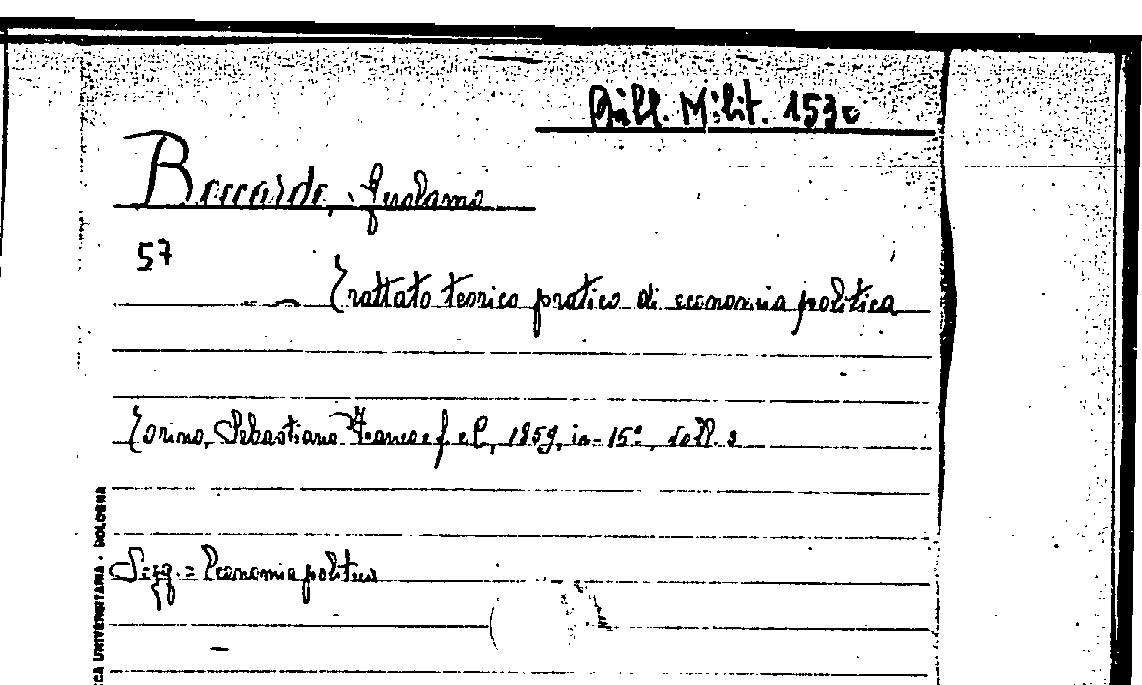 Bibl. Milit. 1530
Boccardo, Gerolamo
57
— Trattato teorico pratico di economia politica
Torino, Sebastiano Franco e f. e C., 1859, in-15°, voll. 2
Sogg. = Economia politica
CA UNIVERSITARIA - BOLOGNA